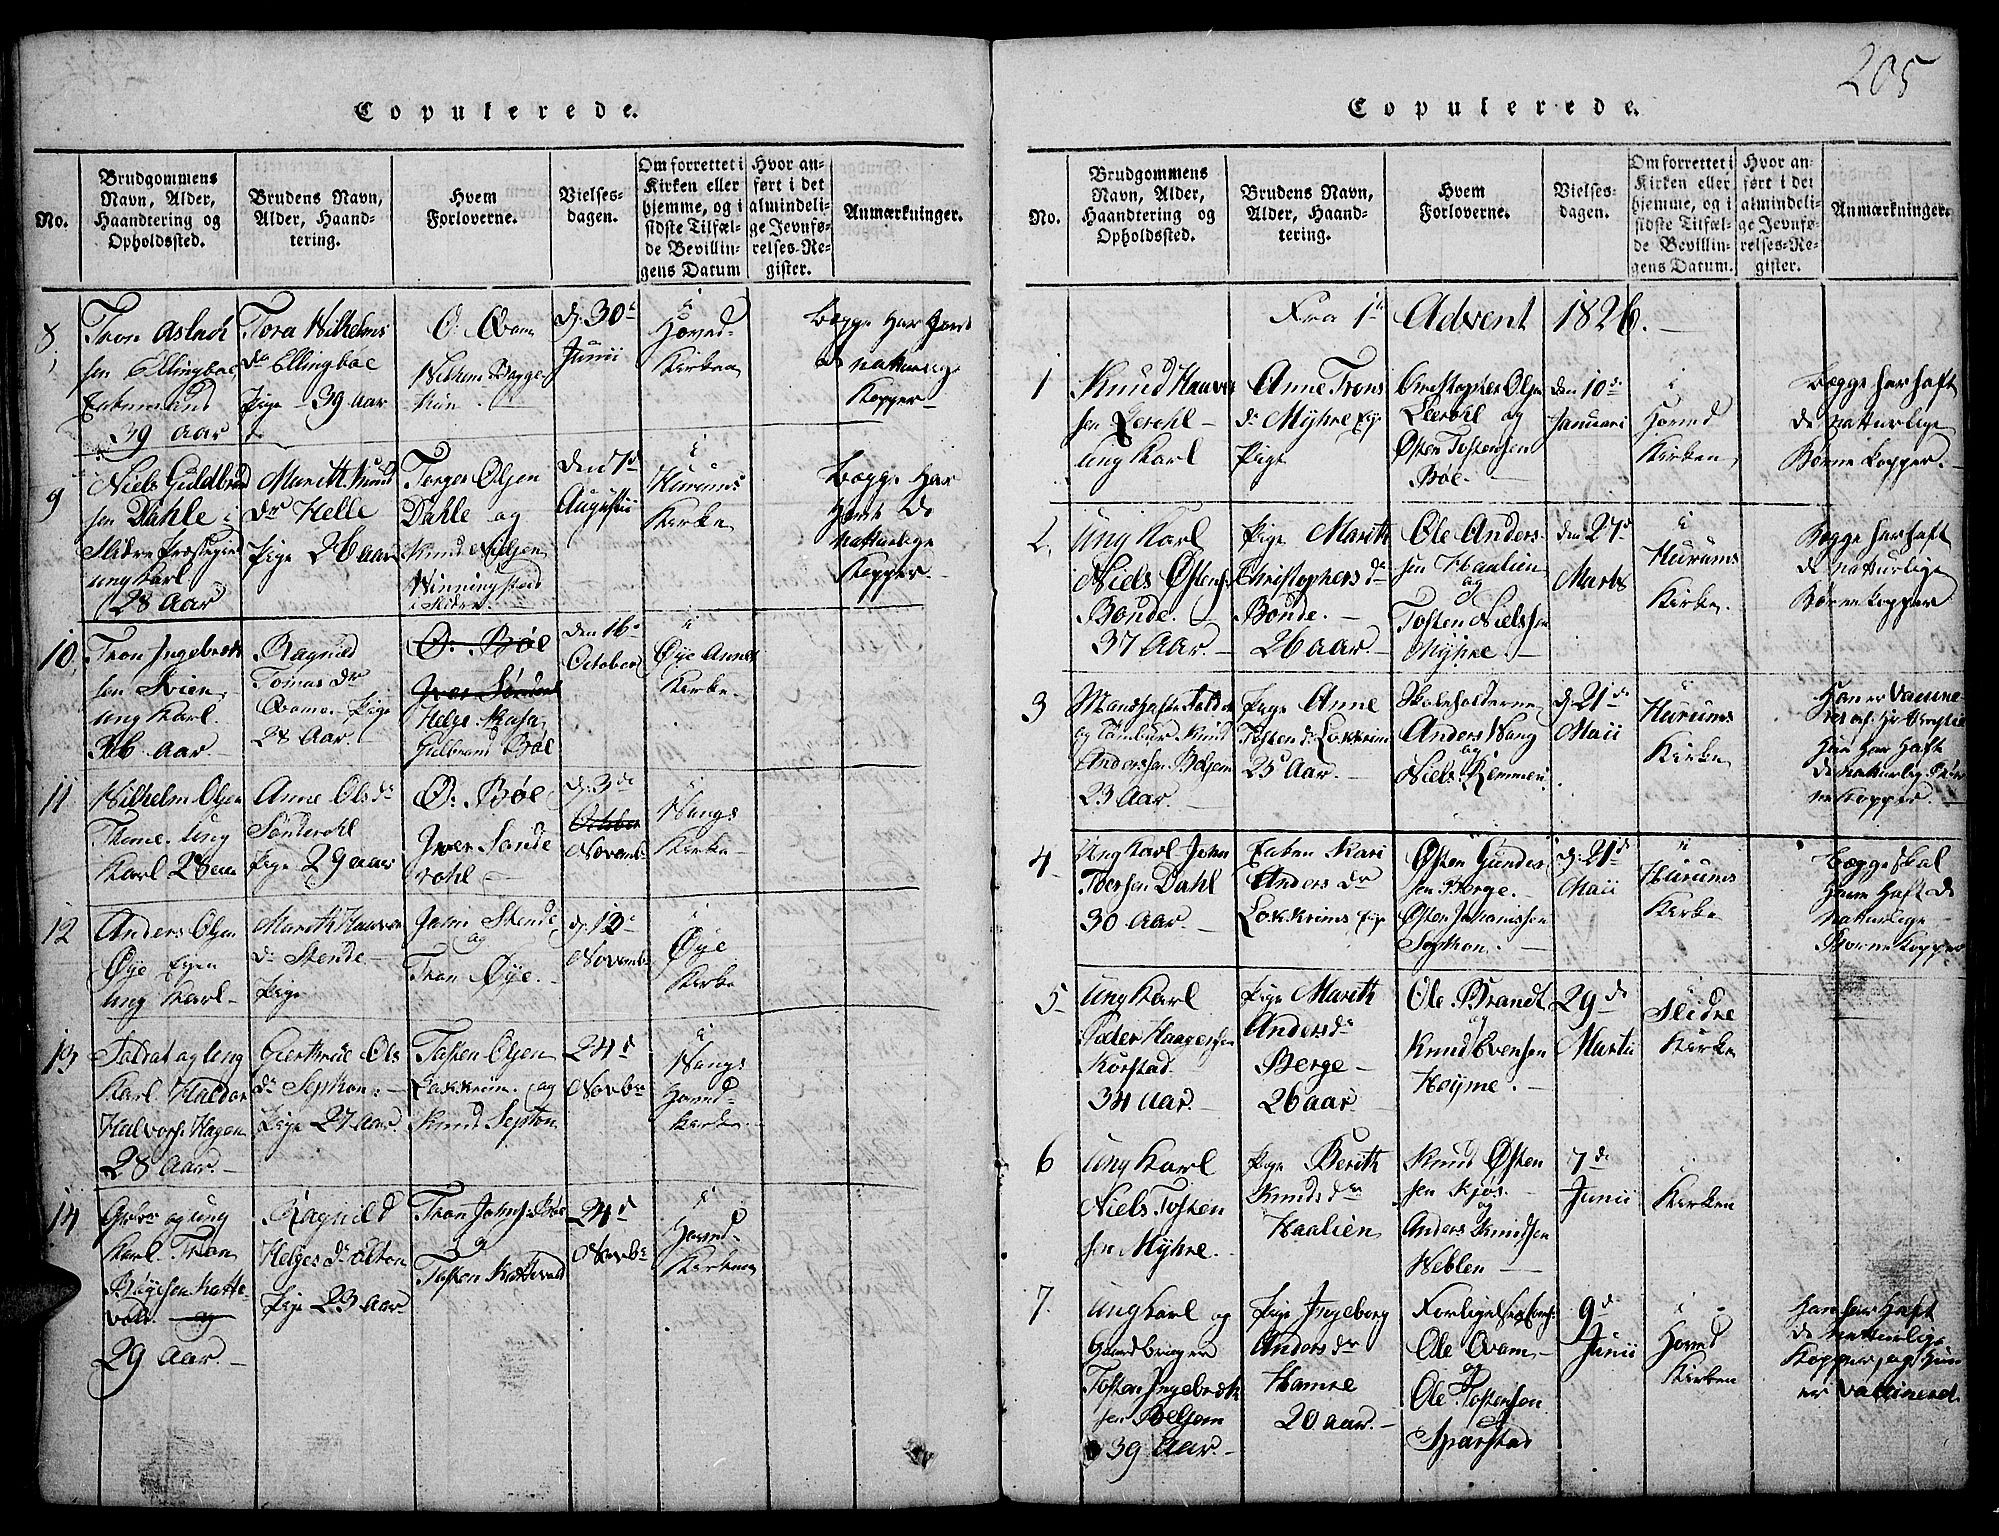 205
Copulerede.
No.
Brudgommens
Navn, Alder,
Haandtering og
Opholdssted.
Brudens Navn,
Alder, Haand-
tering.
Hvem
Forloverne.
Vielses-
dagen.
Om forrettet i
Kirken eller
hjemme, og i
sidste Tilfæl-
de Bevillin-
gens Datum
Hvor an-
ført i det
almindeli-
ge Jevnfø-
relses-Re-
gister.
Anmærkninger.
8
Tron Aslach
sen Ellingboe,
39 Aar
Tora Wilhelms
dr Ellingboe
Pige 39 Aar
O. Qvam
Wilhelm Bagge
d. 30te
Junii
i
Hoved-
Kirken
Begge har havt
de naturlige
Kopper
9
Niels Guldbrand
sen Dahle i
Slidre Præstegield
ung Karl
28 Aar
Marith Knud
dr Helle
Pige 26 aar
Torger Olsen
Dahle og
Knud Nielsen
Winningstad
i Slidre
den 7d
Augustii
i
Hurums
Kirke
Begge Har
Havt de
naturlige
Kopper.
10
Tron Ingebret
sen Svien,
ung Karl.
26 Aar
Ragnild
Tomas Dr
Qvame. Pige
28 Aar.
O. Bøe
Iver Sønderol
Helge Kasa
Gulbrand Bøe
den 16de
October
i
Øye Annex
Kirke.
11
Wilhelm Olsen
Thune. Ung
Karl 28 aar
Anne Olsdr
Sønderohl
Pige 29 aar
O. Bøe
Iver Sønde
rohl
d. 3de
October
Novemb.
i
Vangs
Kirke
12
Anders Olsen
Øye Egen
ung Karl
Marith Hauven
dr Stende
Pige
Jørn Stende
og
Tron Øye.
d. 12
Novemb.
i
Øye
Kirke
13
Soldat og ung
Karl Haldor
Halvors. Hagen
28 Aar.
Giertrud Ols
dr Sephon.
Pige 27 Aar.
Tosten Olsen
Loxkrim og
Knud Sephon
24d
Novbr
i
Vangs
Hoved-
Kirke.
14
Gbr og ung
Karl Tron
Bøyesen Katte-
vold. og
29 Aar.
Ragnild
Helges dr Ølton
Pige 23 Aar
Tron Johns. Bøe
og
Tosten Kattevold
24d
Novbr
i
Hoved-
Kirken
Copulerede.
No.
Brudgommens
Navn, Alder,
Haandtering og
Opholdssted.
Brudens Navn,
Alder, Haand-
tering.
Hvem
Forloverne.
Vielses-
dagen.
Om forrettet i
Kirken eller
hjemme, og i
sidste Tilfæl-
de Bevillin-
gens Datum.
Hvor an-
ført i det
almindeli-
ge Jevnfø-
relses-Re-
gister.
Anmærkninger.
Fra 1te Advent 1826.
1
Knud Hauver
sen Qerohl
ung Karl
Anne Trons
dr Myhre
Pige
Christopher Olsen
Leervil og
Østen Tostensen
Bøe.
den 10de
Januari
i
Hoved
Kirken,
Begge har haft
de naturlige
Børne kopper.
2,
Ung Karl
Niels Østensen
Bonde.
37 Aar.
Pige Marith
Christophersdr
Bonde.
26 aar.
Ole Anders-
sen Haalien
og
Tosten Nielssen
Myhre.
den 27de
Marts
i
Hurums
Kirke.
Begge har haft
de naturlige
Børne kopper
3
og Tambur Knud
Anderssen Belsem
23 Aar.
Pige Anne
Tosten dr Loxkrim
25 Aar.
Skoleholderne
Anders Vang
og
Niels Remmen
d. 21de
Maii
i
Hurums
Kirke
Han er Vaccine-
Hun har haft
de naturlig Bør
nekopper.
4
Ung Karl John
Iversen Dahl
30 Aar.
Enken Kari
Anders dr
Loxkrims
Østen Gunders
sen Berge.
Østen Johannissen
Sephon.
d. 21de
Maii
i
Hurums
Kirke
Begge skal
Have Haft de
Naturlige
Børne kopper
5
Ung Karl
Peder Haagensen
Kørstad.
34 Aar.
Pige Marith
Andersdr
Berge
26 aar
Ole Brandt
og
Knud Evensen
Høyme.
29de
Martii
i
Slidre
Kirke
6
Ung Karl
Niels Tosten
sen Myhre.
Pige Berith
Knudsdr
Haalien
Knud Østen
sen Kjøs.
og
Anders Knudsen
Neblen
7de
Junii
i
Kirken
7.
Ung Karl og
Gaardbruger
Tosten Ingebrigt
sen Belsem
39 Aar.
Pige Ingeborg
Anders dr
Hamre
20 aar.
Ole Qvam
og
Ole Tostensen
Sparstad
9de
Junii
i
Hoved
Kirken
Han har Haft
de Naturlige
Kopper, og Hun
er Vaccineret.